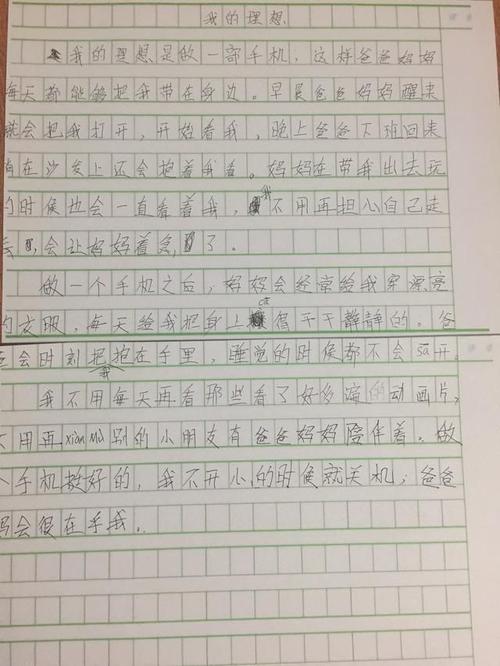 我的理想
我的理想是做一部手机，这样爸爸妈妈
每天都能够把我带在身边。早晨爸爸妈妈醒来
就会把我打开，开始看我，晚上爸爸下班回来
躺在沙发上还会抱着我看。妈妈在带我出去玩
的时候也会一直看着我，我不用再担心自己走
丢，会让妈妈着急了。
做一个手机之后，妈妈会经常给我穿漂亮
的衣服，每天给我把身上擦得干干静静的。爸
爸会时刻把我抱在手里，睡觉的时候都不会sā开。
我不用每天再看那些看了好多遍的动画片，
不用再xiàn mù别的小朋友有爸爸妈妈陪伴着。做
个手机挺好的，我不开心的时候就关机；爸爸
妈会很在乎我.